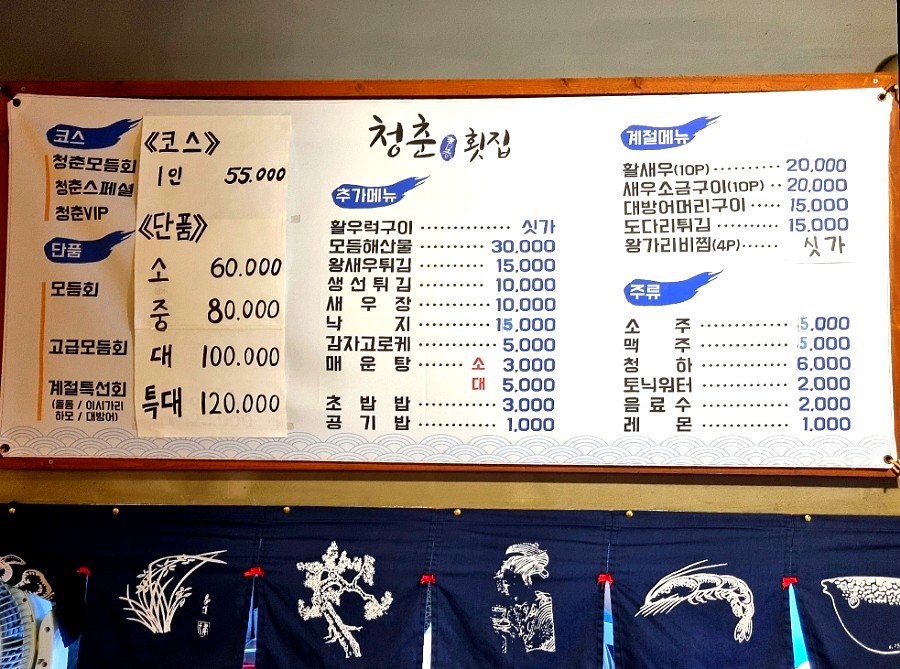 코스
청춘모듬회
청춘스페셜
청춘VIP
단품
모듬회
고급모듬회
계절특선회
(돌돔 / 이시가리
하모 / 대방어)
《코스》
1인 55.000
《단품》
소 60.000
중 80.000
대 100.000
특대 120.000
청춘 횟집
추가메뉴
활우럭구이 ·············· 싯가
모듬해산물 ········ 30,000
왕새우튀김 ········ 15,000
생선튀김 ········ 10,000
새우장 ········ 10,000
낙지 ········ 15,000
감자고로케 ········ 5,000
매운탕 ····· 소 3,000
대 5,000
초밥밥 ········ 3,000
공기밥 ········ 1,000
계절메뉴
활새우(10P) ·········· 20,000
새우소금구이(10P) ·· 20,000
대방어머리구이 ····· 15,000
도다리튀김 ·········· 15,000
왕가리비찜(4P)······ 싯가
주류
소주 ············ 5,000
맥주 ············ 5,000
청하 ············ 6,000
토닉워터 ············ 2,000
음료수 ············ 2,000
레몬 ············ 1,000